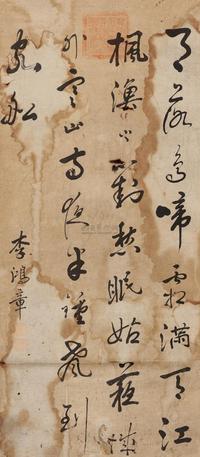 月落烏啼霜滿天江
楓漁火對愁眠姑蘇城
外寒山寺夜半鐘聲到
客船
李鴻章